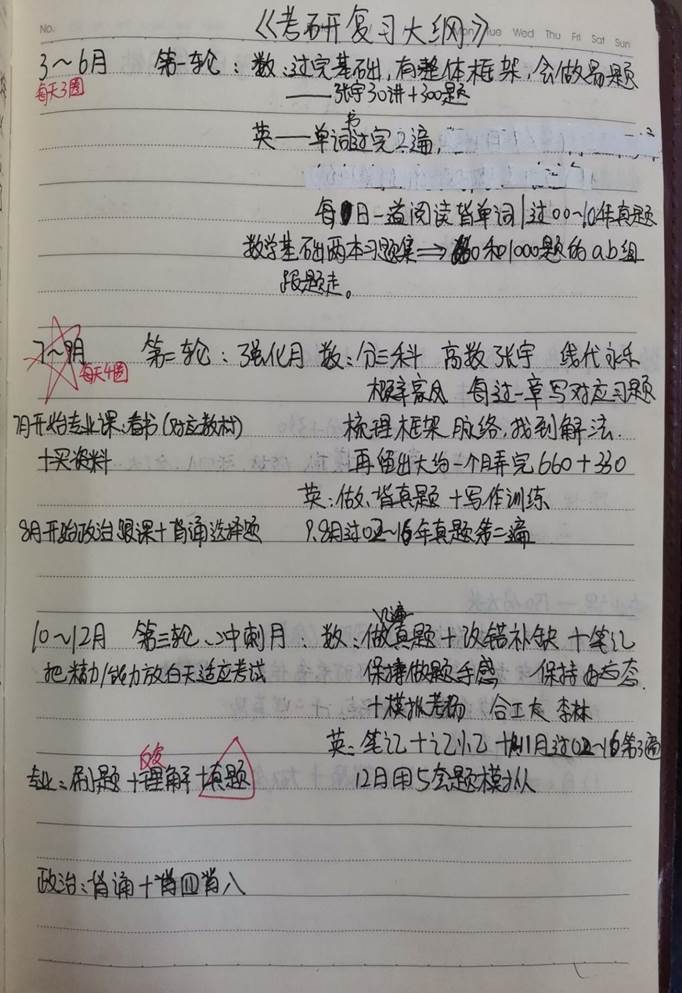 No.
Mon Tue Wed Thu Fri Sat Sun
《考研复习大纲》
3~6月 第一轮：数：过完基础，有整体框架，会做易题
每天3圈
——张宇30讲+300题
英——单词书过完2遍，
每日一道阅读背单词|过00~10年真题
数学基础两本习题集⇒660和1000题的ab组
跟题走。
7~9月 第二轮：强化月 数：分三科 高数张宇 线代永乐
每天4圈
概率 每过一章写对应习题
7月开始专业课：看书(对应教材) 梳理框架脉络，找到解法.
+买资料 再留出大约一个月弄完660+330
英：做、背真题+写作训练
8月开始政治跟课+背诵选择题 9.8月过02~16年真题第二遍
10~12月 第三轮、冲刺月：数：做真题+改错补缺+笔记
把精力/能力放白天适应考试 保持做题手感 保持好态.
+模拟考场 合工大 李林
英：笔记+记忆+11月过02~16第3遍
专业：刷题+理解+真题 12月用5套题模拟
政治：背诵+肖四肖八